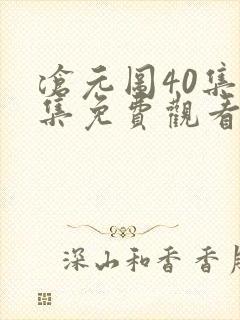 滄元圖40集
集免費觀看
深山和香香